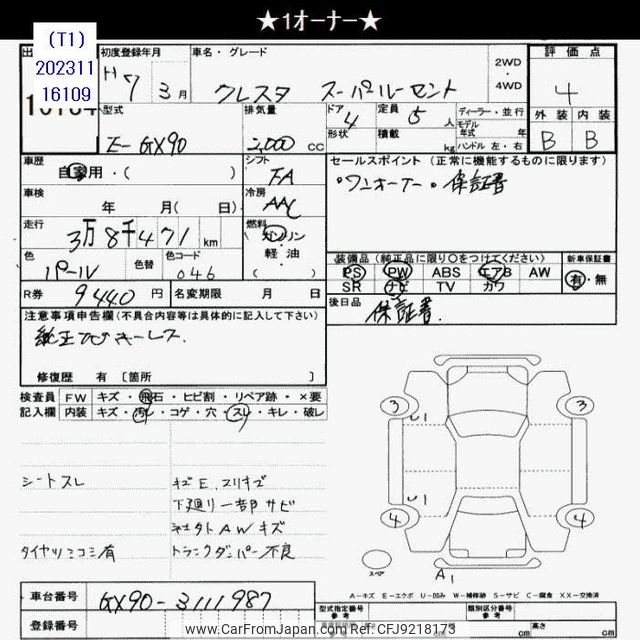 ★1オーナー★
(T1)
202311
16109
初度登録年月
車名・グレード
2WD
・
4WD
評価点
H7 3月
クレスタ スーパールーセント
4
型式
排気量
ドア
定員
ディーラー・並行
外装 内装
E-GX90
2,000 CC
4
5人
モデル年式 年
形状
積載
kg
ハンドル 左・右
B B
車歴
自家用・( )
シフト
FA
セールスポイント (正常に機能するものに限ります)
・ワンオーナー・保証書
車検
年 月( 日)
冷房
AAC
走行
3万8千471km
燃料
ガソリン
・軽油・
( )
色
パール
色替
色コード
046
装備品(純正品に限り○をつけてください)
新車保証書
PS PW ABS エアB AW
有・無
SR ナビ TV カワ
R券
9440円
名変期限 月 日
後日品
保証書.
注意事項申告欄(不具合内容等は具体的に記入して下さい)
修復歴 有 〔箇所 〕
検査員 FW キズ・飛石・ヒビ割・リペア跡・×要
記入欄 内装 キズ・汚レ・コゲ・穴・スレ・キレ・破レ
シートスレ
キズE、スリキズ
下廻リ一部サビ
タイヤツミコミ有
トランクダンパー不良
3
3
U1
U1
4
4
スペア
A1
A-キズ E-エクボ U-凹み W-補修跡 S-サビ C-腐食 XX-交換済
車台番号
GX90-3111987
登録番号
型式指定番号
参考
類別区分番号
参考
車両重量
長さ
cm
幅
cm
高さ
cm
www.CarFromJapan.com Ref: CFJ9218173